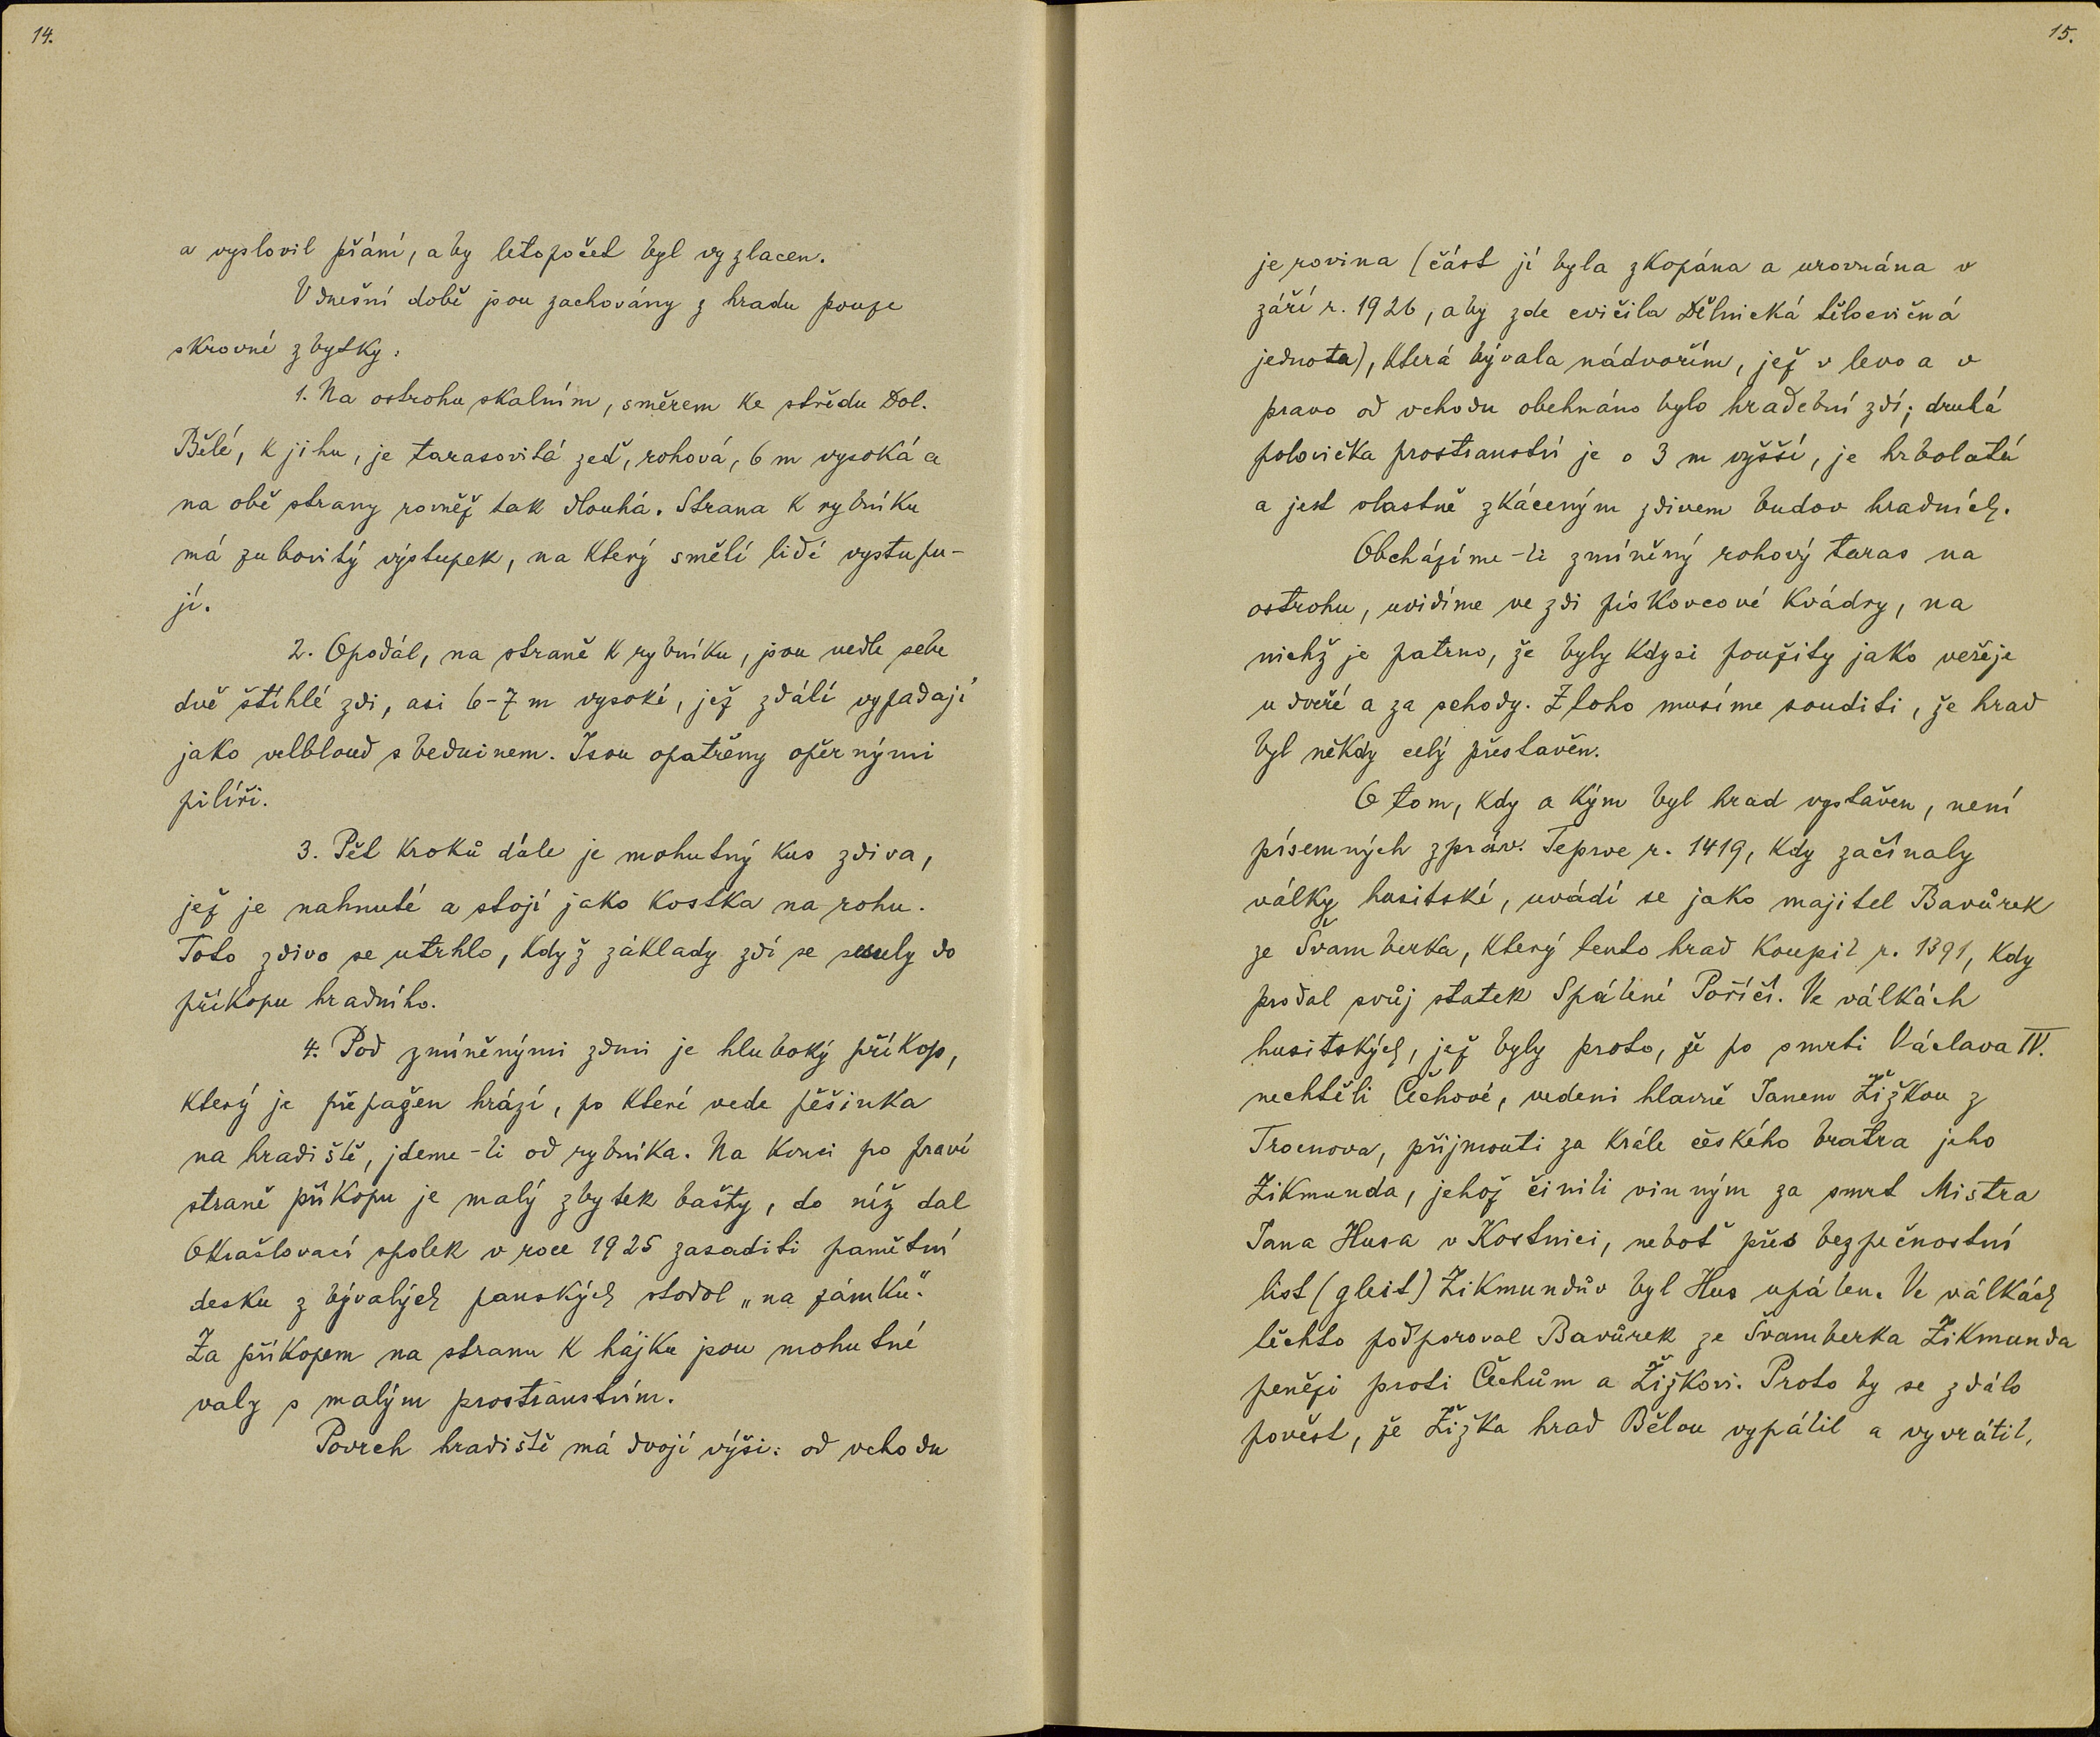 14.
a vyslovil přání, aby letopočet byl vyzlacen.
V dnešní době jsou zachovány z hradu pouze
skrovné zbytky:
1. Na ostrohu skalním, směrem ke středu Dol.
Bělé, k jihu, je tarasovitá zeď, rohová, 6 m vysoká a
na obě strany rovněž tak dlouhá. Strana k rybníku
má zubovitý výstupek, na který smělí lidé vystupu-
jí.
2. Opodál, na straně k rybníku, jsou vedle sebe
dvě štíhlé zdi, asi 6-7 m vysoké, jež zdálí vypadají
jako velbloud s beduinem. Jsou opatřeny opěrnými
pilíři.
3. Pět kroků dále je mohutný kus zdiva,
jež je nahnuté a stojí jako kostka na rohu.
Toto zdivo se utrhlo, když základy zdí se sesuly do
příkopu hradního.
4. Pod zmíněnými zdmi je hluboký příkop,
který je přepažen hrází, po které vede pěšinka
na hradiště, jdeme-li od rybníka. Na konci po pravé
straně příkopu je malý zbytek bašty, do níž dal
Okrašlovací spolek v roce 1925 zasaditi pamětní
desku z bývalých panských stodol „na zámku".
Za příkopem na stranu k hájku jsou mohutné
valy s malým prostranstvím.
Povrch hradiště má dvojí výši: od vchodu
15.
je rovina (část jí byla zkopána a urovnána v
září r. 1926, aby zde cvičila Dělnická tělocvičná
jednota), která bývala nádvořím, jež v levo a v
pravo od vchodu obehnáno bylo hradební zdí; druhá
polovička prostranství je o 3 m vyšší, je hrbolatá
a jest vlastně zkáceným zdivem budov hradních.
Obcházíme-li zmíněný rohový taras na
ostrohu, uvidíme ve zdi pískovcové kvádry, na
nichž je patrno, že byly kdysi použity jako veřeje
u dveří a za schody. Z toho musíme souditi, že hrad
byl někdy celý přestavěn.
O tom, kdy a kým byl hrad vystavěn, není
písemných zpráv. Teprve r. 1419, kdy začínaly
války husitské, uvádí se jako majitel Bavůrek
ze Švamberka, který tento hrad koupil r. 1391, kdy
prodal svůj statek Spálené Poříčí. Ve válkách
husitských, jež byly proto, že po smrti Václava IV.
nechtěli Čechové, vedeni hlavně Janem Žižkou z
Trocnova, přijmouti za krále českého bratra jeho
Zikmunda, jehož činili vinným za smrt Mistra
Jana Husa v Kostnici, neboť přes bezpečnostní
list (gleit) Zikmundův byl Hus upálen. Ve válkách
těchto podporoval Bavůrek ze Švamberka Zikmunda
penězi proti Čechům a Žižkovi. Proto by se zdálo
pověst, že Žižka hrad Bělou vypálil a vyvrátil,